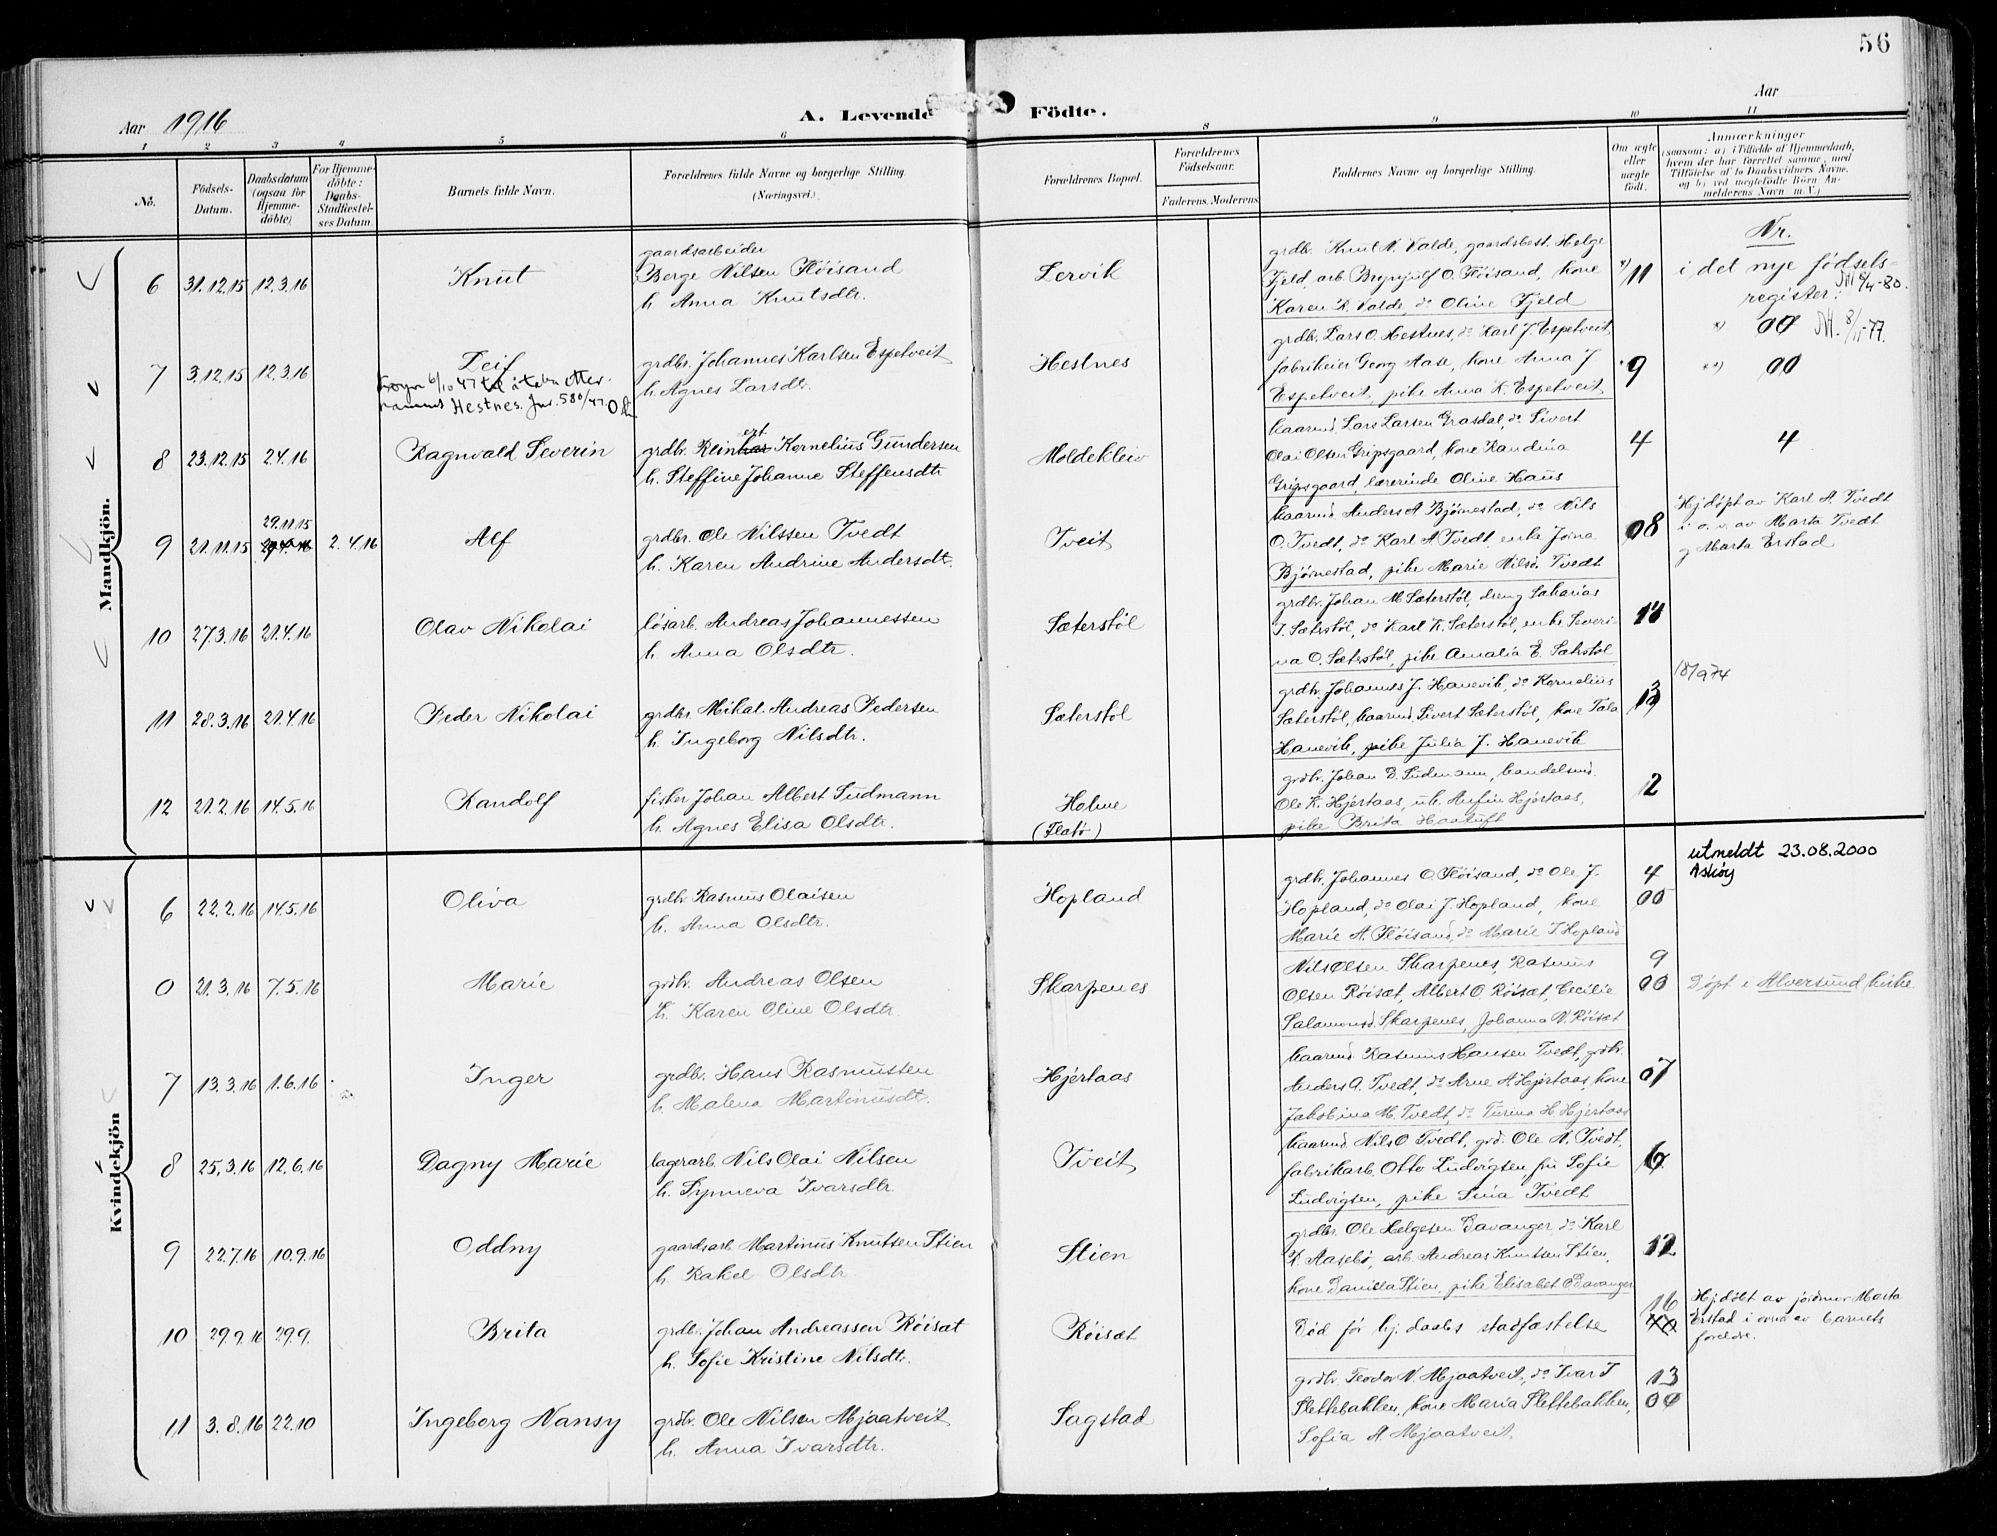 56
Aar 1916
A. Levende Födte.
Aar
1 2 3 4 5 6 8 9 10 11
No.
Födsels-Datum.
Daabsdatum (ogsaa for Hjemme-döbte)
For Hjemme-döbte: Daabs-Stadfæstel-ses Datum
Barnets fulde Navn.
Forældrenes fulde Navne og borgerlige Stilling.
(Næringsvei.)
Forældrenes Bopæl.
Forældrenes Födselsaar.
Faderens. Moderens.
Faddernes Navne og borgerlige Stilling.
Om ægte eller uægte födt.
Anmærkninger
(saasom: a) i Tilfælde af Hjemmedaab,
hvem der har forrettet samme, med
Tilföielse af to Daabsvidners Navne,
og b) ved uægtefödte Börn An-
melderens Navn m. V.)
Mandkjön.
6 31.12.15 12.3.16 Knut
gaardsarbeider
Berge Nilsen Fløisand
h. Anna Knutsdtr.
Lervik
grdbr. Knut N. Valde, gaardsbest. Helge
Fjeld, arb. Brynjulf O. Fløisand, kone
Karen K. Valde, do Oline Fjeld
11
Nr.
i det nye fødsels-
register:
7 3.12.15 12.3.16 Leif
etter-
navnet Hestnes. Jnr. 580/47
grdbr. Johannes Karlsen Espetveit
h. Agnes Larsdtr.
Hestnes
grdbr. Lars O. Hestnes, do Karl J. Espetveit,
fabrikeier Georg Aase, kone Anna J
Espetveit, pike Anna K. Espetveit,
9
00
00
8 23.12.15 2.4.16 Ragnvald Severin
grdbr. Reinhar ert Kornelius Gundersen
h. Steffine Johanne Steffensdtr
Moldekleiv
kaarmd. Lars Larsen Grasdal, do Sivert
Olai Olsen Gripsgaard, kone Randina
Gripsgaard, lærerinde Oline Haus
4
4
9 21.11.15 29.11.15 2.4.16 Alf
grdbr. Ole Nilssen Tvedt
h. Karen Andrine Andersdt.
Tveit
kaarmd Anders A Bjørnestad, do Nils
O. Tvedt, do Karl A Tvedt, enke Jorina
Bjørnestad, pike Marie Nilsd. Tvedt
08
Hjdøpt av Karl A. Tvedt
i o. v. av Marta Tvedt
g Marta Erstad
10 27.3.16 21.4.16 Olav Nikolai
løsarb. Andreas Johannessen
h. Anna Olsdtr.
Sæterstøl
grdbr. Johan M. Sæterstøl, dreng Sakarias
J. Sæterstøl, do Karl K. Sæterstøl, enke Severi-
na O. Sæterstøl, pike Amalia E. Sæterstøl
11 28.3.16 21.4.16 Peder Nikolai
grdbr. Mikal Andreas Pedersen
h. Ingeborg Nilsdtr.
Sæterstøl
grdbr. Johannes J. Hanevik, do Kornelius
Sæterstøl, kaarmd. Sivert Sæterstøl, kone Tala
Hanevik, pike Julia J. Hanevik
13
12 21.2.16 14.5.16 Randolf
fisker Johan Albert Sudmann
h. Agnes Elisa Olsdtr.
Holme
(Flatø)
grdbr. Johan D. Sudmann, handelsmd.
Ole K. Hjertaas, uk. Anfin Hjertaas,
pike Brita
12
Kvindekjön
6 22.2.16 14.5.16 Oliva
grdbr. Rasmus Olaisen
h. Anna Olsdtr.
Hopland
grdbr. Johannes O. Fløisand, do Ole J.
Hopland, do Olai J. Hopland, kone
Marie A. Fløisand, do Marie J Hopland
4
00
utmeldt 23.08.2000
Askøy
0 21.3.16 7.5.16 Marie
grdbr. Andreas Olsen
h. Karen Oline Olsdtr.
Skarpenes
Nils Olsen Skarpenes, Rasmus
Olsen Røisæt, Albert O. Røisæt, Cecilie
Salamonsd. Skarpenes, Johanna N. Røisæt
9
00
Døpt i Alversund kirke
7 13.3.16 1.6.16 Inger
grdbr. Hans Rasmussen
h. Malena Martinusdt.
Hjertaas
kaarmd. Rasmus Hansen Tvedt, grdbr.
Anders A. Tvedt, do Arne A Hjertaas, kone
Jakobina M. Tvedt, do Turina H Hjertaas
07
8 25.3.16 12.6.16 Dagny Marie
lagerarb. Nils Olai Nilsen
h. Synneva Ivarsdtr.
Tveit
kaarmd. Nils O Tvedt, grd. Ole N. Tvedt,
fabrikarb. Otto Ludvigsen fru Sofie
Ludvigsen, pike Sina Tvedt
6
9 22.7.16 10.9.16 Oddny
gaardsarb. Martinus Knutsen Stien
h. Rakel Olsdtr.
Stien
grdbr. Ole Helgesen Davanger do Karl
R. Aasebø, arb. Andreas Knutsen Stien,
kone Daniella Stien, pike Elisabet O. Davanger
12
10 29.9.16 29.9. Brita
grdbr. Johan Andreassen Røisæt
h. Sofie Kristine Nilsdtr.
Røisæt
Død før hj. daabs stadfæstelse
16
Hj.døbt av jordmor Marta
Erstad i overv av barnets
foreldre.
11 3.8.16 22.10 Ingeborg Nansy
grdbr. Ole Nilsen Mjaatveit
h. Anna Ivarsdtr.
Sagstad
grdbr. Teodor N. Mjaatveit, do Ivar I
Slettebakken, kone Maria Slettebakken,
Sofia A. Mjaatveit.
13
00